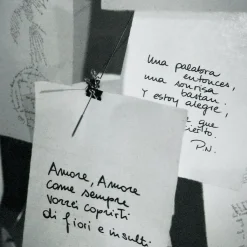 Una palabra
entonces,
una sonrisa
bastan.
Y estoy alegre,
que
cierto.
P.N.
Amore, Amore
come sempre
vorrei coprirti
di fiori e insulti